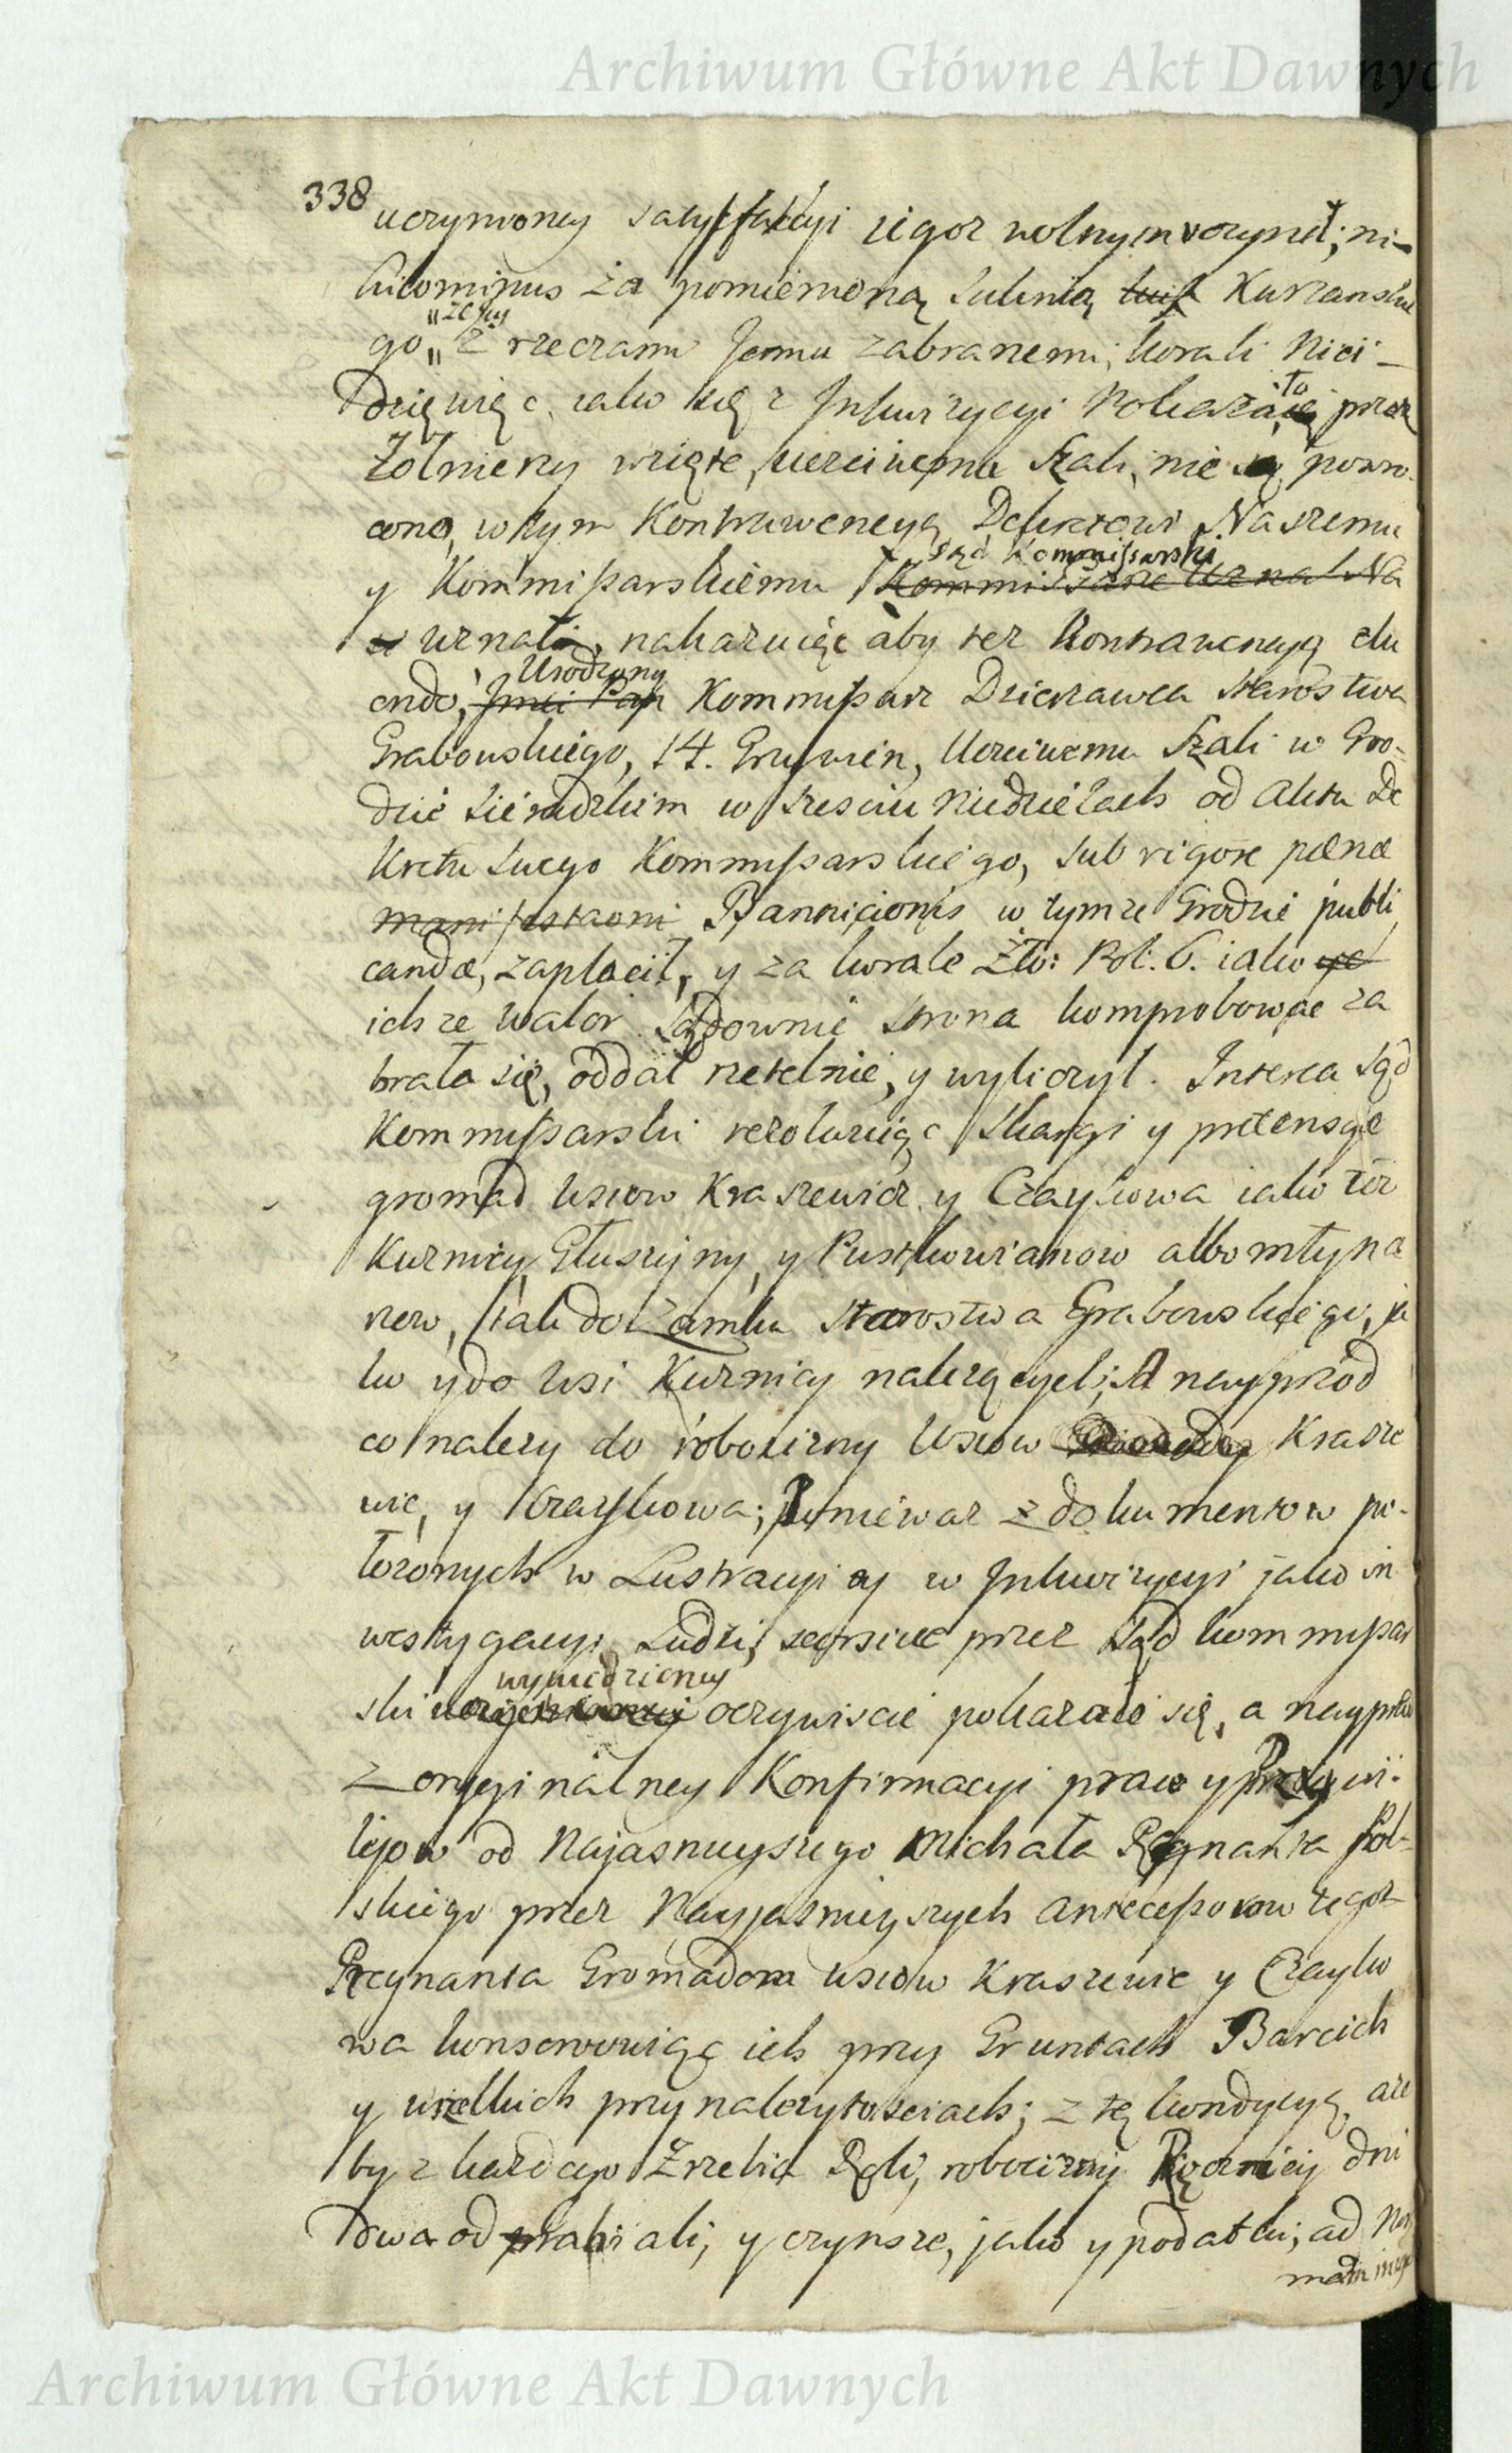 Archiwum Główne Akt Dawnych
338
uczynioney satysfakcyi tegoż wolnym uczynił; ni-
hilominus że pomienioną suknią Kurzanskie
go, z rzeczami Jemu zabranemi, korali nici
dziewięć, iako się z Inkwizycyi pokazało przez
Zołnierzy wzięte, uczciwemu Szali, nie są powro-
cone, w tym Kontrawencyą Dekretowi Naszemu
sąd Kommissarski
y Kommissarskiemu Kommissarze Uznal Na
uznał, nakazuięc aby tez Kontrawencyą elu
Urodzony
endo, Jmci Pan Kommissarz Dzierzawca Starostwa
Grabowskiego, 14. Grzywien, Uczciwemu Szali w Gro-
dzie Sieradzkim w szesciu Niedzielach od Aktu De
kretu swego Kommissarskiego, sub rigore pœnæ
manifestaoni Bannicionis w tymze Grodzie publi
candæ, zapłacił, y za korale Zło: Pol: 6. iako
ich ze walor Sądownie strona komprobować za
brała się, oddał rzetelnie, y wyliczył. Interea Sąd
Kommissarski rezolwuiąc skargi y prætensye
gromad wsiow Kraszewicz y Czaykowa iako też
Kuznicy Głuszyny, y Pustkowianow albo młyna
rzow, tak do Zamku Starostwa Grabowskiego, ja
ko y do wsi Kuznicy należących; A nayprzod
co należy do robocizny Wsiow Krasze
wic, y Czaykowa; Ponieważ z dokumentow po-
łożonych w Lustracyi y w Inkwizycyi jako in
westygacyi Ludzi, seorsive przez Sąd kommissar
wywiedzioney
ski oczywiscie pokazało się, a nayprzod
z oryginalney Konfirmacyi praw y Przywi-
lejow od Najasnieyszego Michała Regnanta Pol-
skiego przez Nayjasnieyszych Antecessorow tegoż
Regnanta Gromadom wsiow Kraszewic y Czayko
wa konserwuiąc ich przy Gruntach Barciach
y wszelkich przynalezytosciach; z tą kondycyą, aże
by z każdego Zrzebia Roli, robocizny Ręczniey dni
Dwa odrabiali, y czynsze, jako y podatki, ad Nor
mam
Archiwum Główne Akt Dawnych